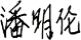 潘明伦